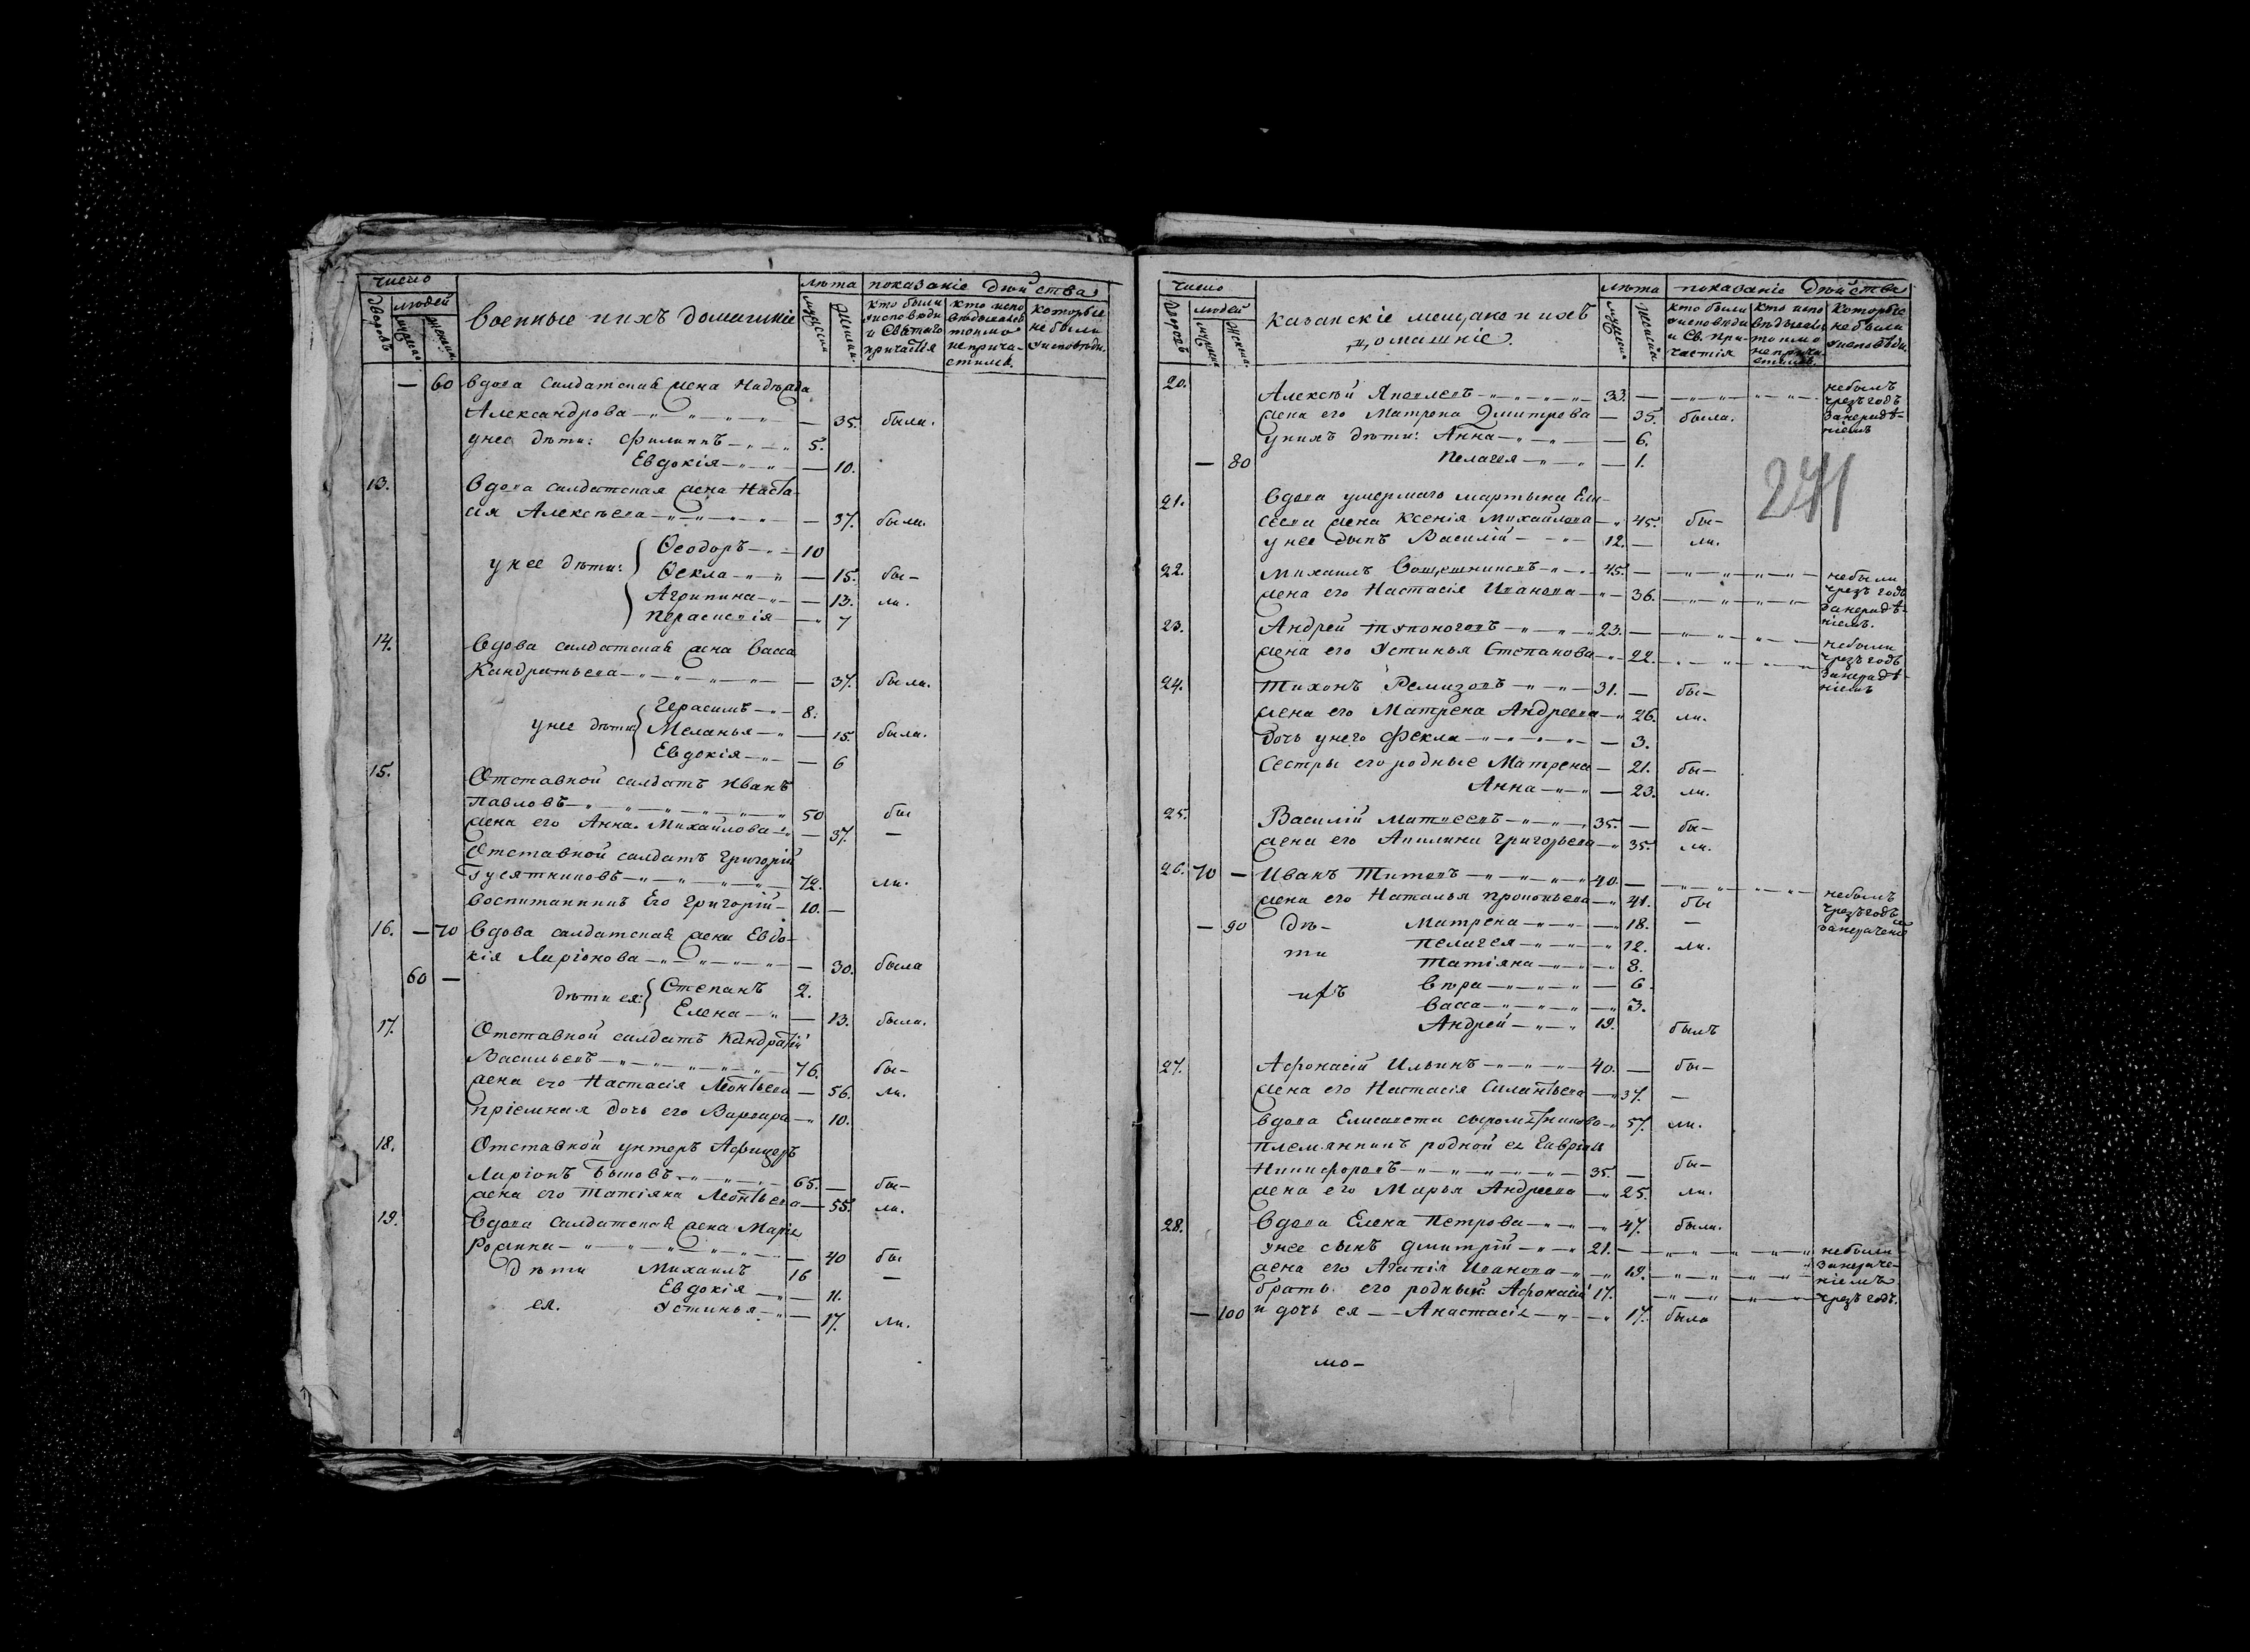 число
дворовъ
людей
мужеска
женска
Военные и ихъ домашніе
лѣта
мужеска
женска
показаніе дѣйства
кто были у исповѣди и Святаго причастія
кто исповѣдывался токмо не причастился
которые не были у исповѣди.
— 60 Вдова Салдатская жена Надѣжда
Александрова — 35. была.
у нее дѣти: Филиппъ 5.
Евдокія — 10.
13. Вдова салдатская жена Наста-
сія Алексѣева — 37. были.
у нее дѣти: Ѳеодоръ 10
Ѳекла — 15. бы-
Агрипина — 13. ли.
Параскевія — 7
14. Вдова салдатская жена Васса
Кандратьева — 37. была.
у нее дѣти: Герасимъ 8.
Меланья — 15. была.
Евдокія — 6
15. Отставной салдатъ Иванъ
Павловъ 50 бы
жена его Анна Михайлова — 37. —
Отставной салдатъ Григорій
Гусятниковъ 72. ли.
воспитанникъ Его Григорій 10. —
16. — 70 Вдова салдатская жена Евдо-
кія Ларіонова — 30. была
60 — дѣти ея: Степанъ 2.
Елена — 13. была.
17. Отставной салдатъ Кандратій
Васильевъ 76. бы-
жена его Настасія Леонтьева — 56. ли.
пріемная дочь его Варвара 10.
18. Отставной унтеръ Афицеръ
Ларіонъ Бытовъ 65. — бы-
жена его Татіяна Леонтьева — 55. ли.
19. Вдова Салдатская жена Марія
Родина — 40 бы
дѣти Михаилъ 16 —
Евдокія — 11.
ея. Устинья — 17. ли.
число
дворовъ
людей
мужеска
женска
Казанскіе мещане и ихъ
домашніе.
лѣта
мужеска
женска
показаніе дѣйства
кто были у исповѣди и Св. Причастія
кто исповѣдывался токмо не причастился.
которые не были у исповѣди.
20. Алексѣй Яковлевъ 33. — небылъ
чрезъ годъ
жена его Матрена Дмитрева — 35. была. занерадѣ-
ніемъ
у нихъ дѣти: Анна — 6.
— 80 Пелагея — 1.
241
21. Вдова умершаго Мартына Ели-
сеева жена Ксенія Михайлова 45. бы-
у нее сынъ Василій 12. — ли.
22. Михаилъ 45. — небыли
жена его Настасія Иванова 36. чрезъ годъ
занерадѣ-
ніемъ.
23. Андрей Тупоноговъ 23. — небыли
жена его Устинья Степанова 22. чрезъ годъ
занерадѣ-
ніемъ
24. Тихонъ Ремизовъ 31. — бы-
жена его Матрена Андреева 26. ли.
дочь у него Фекла — 3.
сестры его родные Матрена — 21. бы-
Анна — 23. ли.
25. Василій Матвеевъ 35. — бы-
жена его Акилина Григорьева 35. ли.
26. 70 — Иванъ Титовъ 40. — небылъ
жена его Наталья Прокопьева 41. бы чрезъ годъ
— 90 дѣ- Матрена 18. —
ти Пелагея 12. ли.
Татіяна 8.
ихъ Вѣра — 6.
Васса 3.
Андрей 19. былъ
27. Афонасій Ильинъ 40. — бы-
жена его Настасія Силантьева 37. —
вдова Елисавета Сыромятникова 57. ли.
племянникъ родной ея Гаврила
Никифоровъ 35. — бы-
жена его Марья Андреева 25. ли.
28. Вдова Елена Петрова 47. была.
у нее сынъ Дмитрій 21. — небыли
жена его Агапія Иванова 19.
братъ его родный Афонасій 17. чрезъ годъ.
— 100 и дочь ея — Анастасія 17. была
мо-